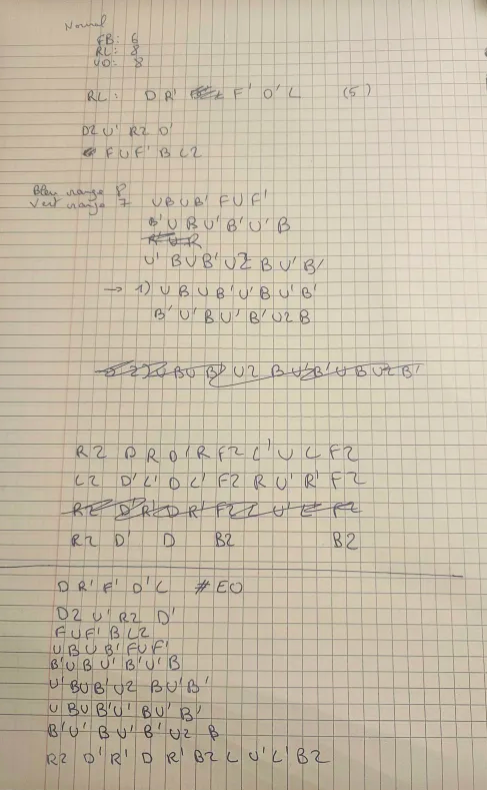 Normal
FB: 6
RL: 8
UD: 8
RL: D R' F' D' L (5)
D2 U' R2 D'
F U F' B L2
Bleu range 8
Vert range 7 U B U B' F U F'
B' U B U' B' U' B
R' U R
U' B U B' U2 B U' B'
→ 1) U B U B' U' B U' B'
B' U' B U' B' U2 B
R2 D R D' R F2 L' U L F2
L2 D' L' D L' F2 R U' R' F2
R2 D' D B2 B2
D R' F' D' L # EO
D2 U' R2 D'
F U F' B L2
U B U B' F U F'
B' U B U' B' U' B
U' B U B' U2 B U' B'
U B U B' U' B U' B'
B' U' B U' B' U2 B
R2 D' R' D R' B2 L U' L' B2